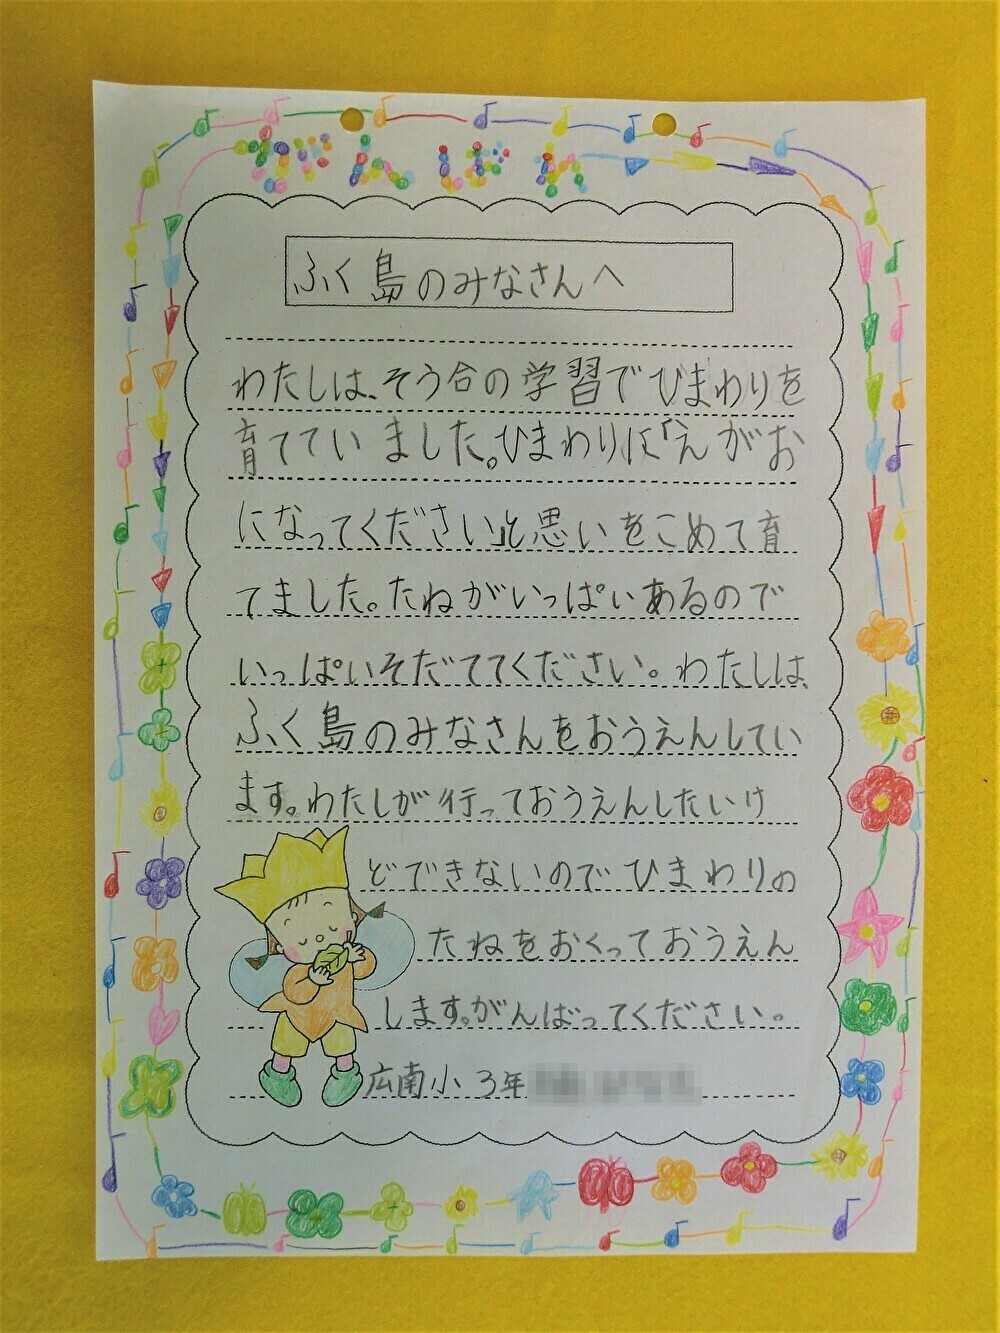 がんばれ
ふく島のみなさんへ
わたしは、そう合の学習でひまわりを
育てていました。ひまわりに「えがお
になってください」と思いをこめて育
てました。たねがいっぱいあるので
いっぱいそだててください。わたしは、
ふく島のみなさんをおうえんしてい
ます。わたしが行っておうえんしたいけ
どできないのでひまわりの
たねをおくっておうえん
します。がんばってください。
広南小3年